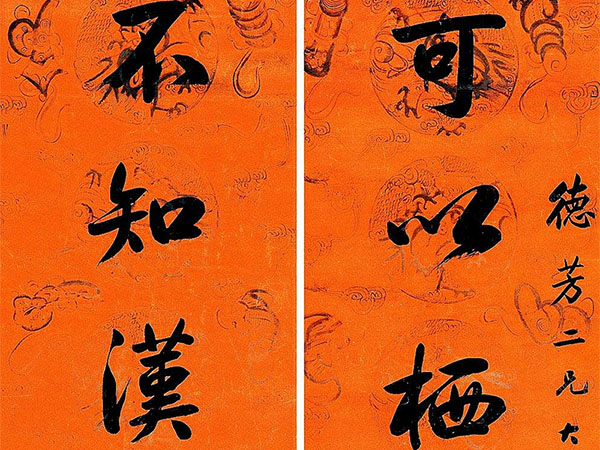 德芳二兄大
可以栖
不知漢